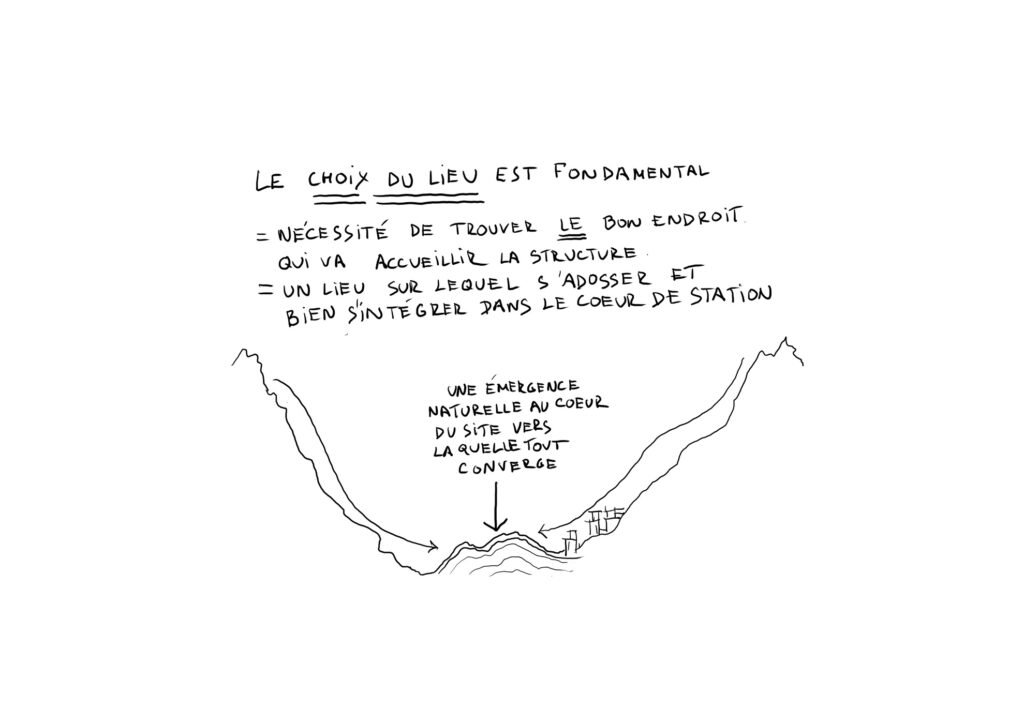 LE CHOIX DU LIEU EST FONDAMENTAL
= NÉCESSITÉ DE TROUVER LE BON ENDROIT
QUI VA ACCUEILLIR LA STRUCTURE.
= UN LIEU SUR LEQUEL S'ADOSSER ET
BIEN S'INTÉGRER DANS LE COEUR DE STATION
UNE ÉMERGENCE
NATURELLE AU COEUR
DU SITE VERS
LA QUELLE TOUT
CONVERGE